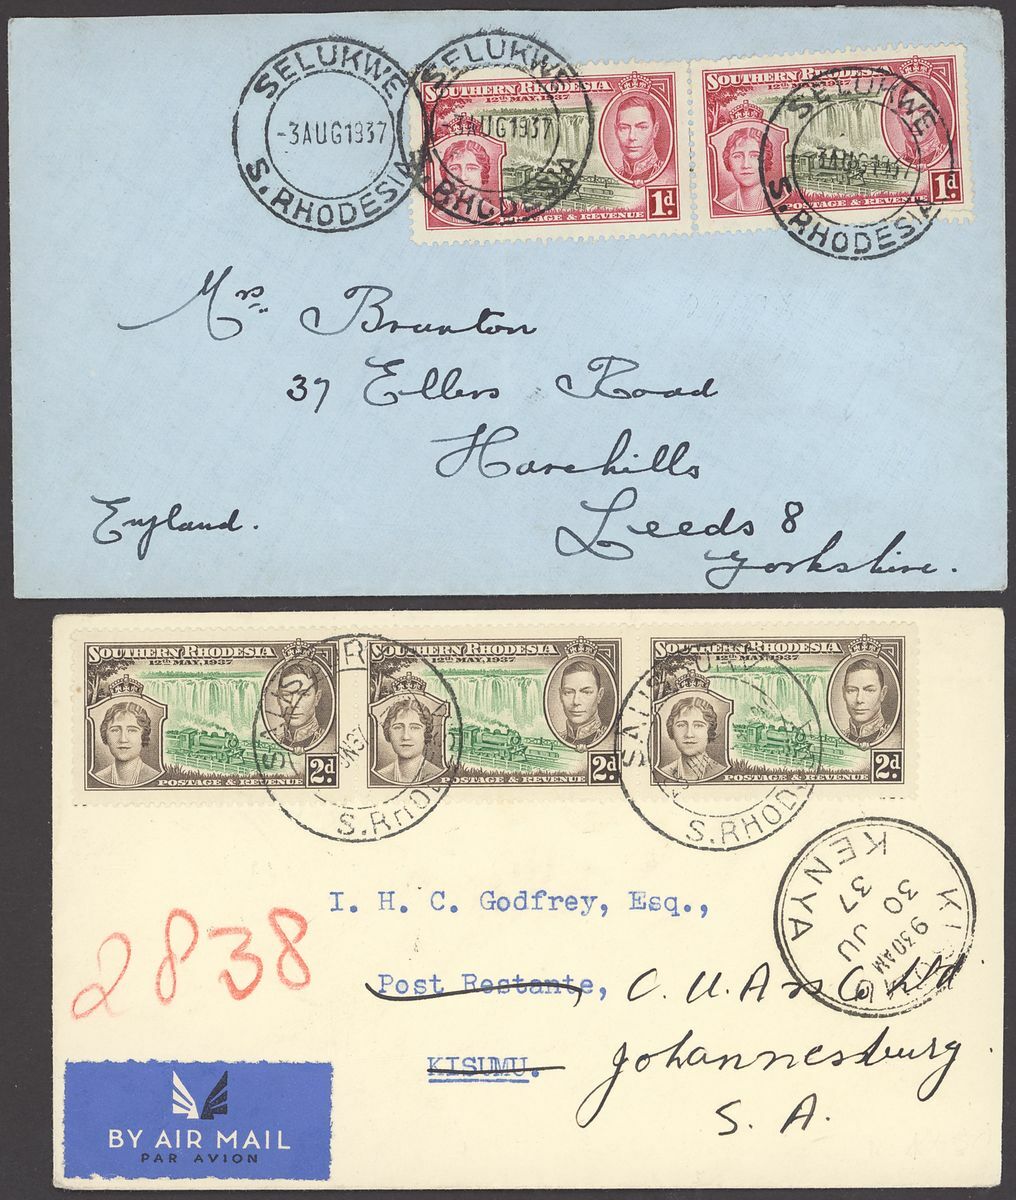 SELUKWE
-3AUG1937
S. RHODESIA
SELUKWE
-3AUG1937
S. RHODESIA
SOUTHERN RHODESIA
12TH MAY, 1937
POSTAGE & REVENUE 1d
SOUTHERN RHODESIA
12TH MAY, 1937
POSTAGE & REVENUE 1d
SELUKWE
-3AUG1937
S. RHODESIA
Mrs. Branton
37 Ellers Road
Harehills
Leeds 8
Yorkshire.
England.
SOUTHERN RHODESIA
12TH MAY, 1937
POSTAGE & REVENUE 2d
SOUTHERN RHODESIA
12TH MAY, 1937
POSTAGE & REVENUE 2d
SOUTHERN RHODESIA
12TH MAY, 1937
POSTAGE & REVENUE 2d
S. RHOD
S. RHOD
KISUMU
930AM
30 JU
37
KENYA
2838
I. H. C. Godfrey, Esq.,
Post Restante, C. U.
KISUMU. Johannesburg
S. A.
BY AIR MAIL
PAR AVION